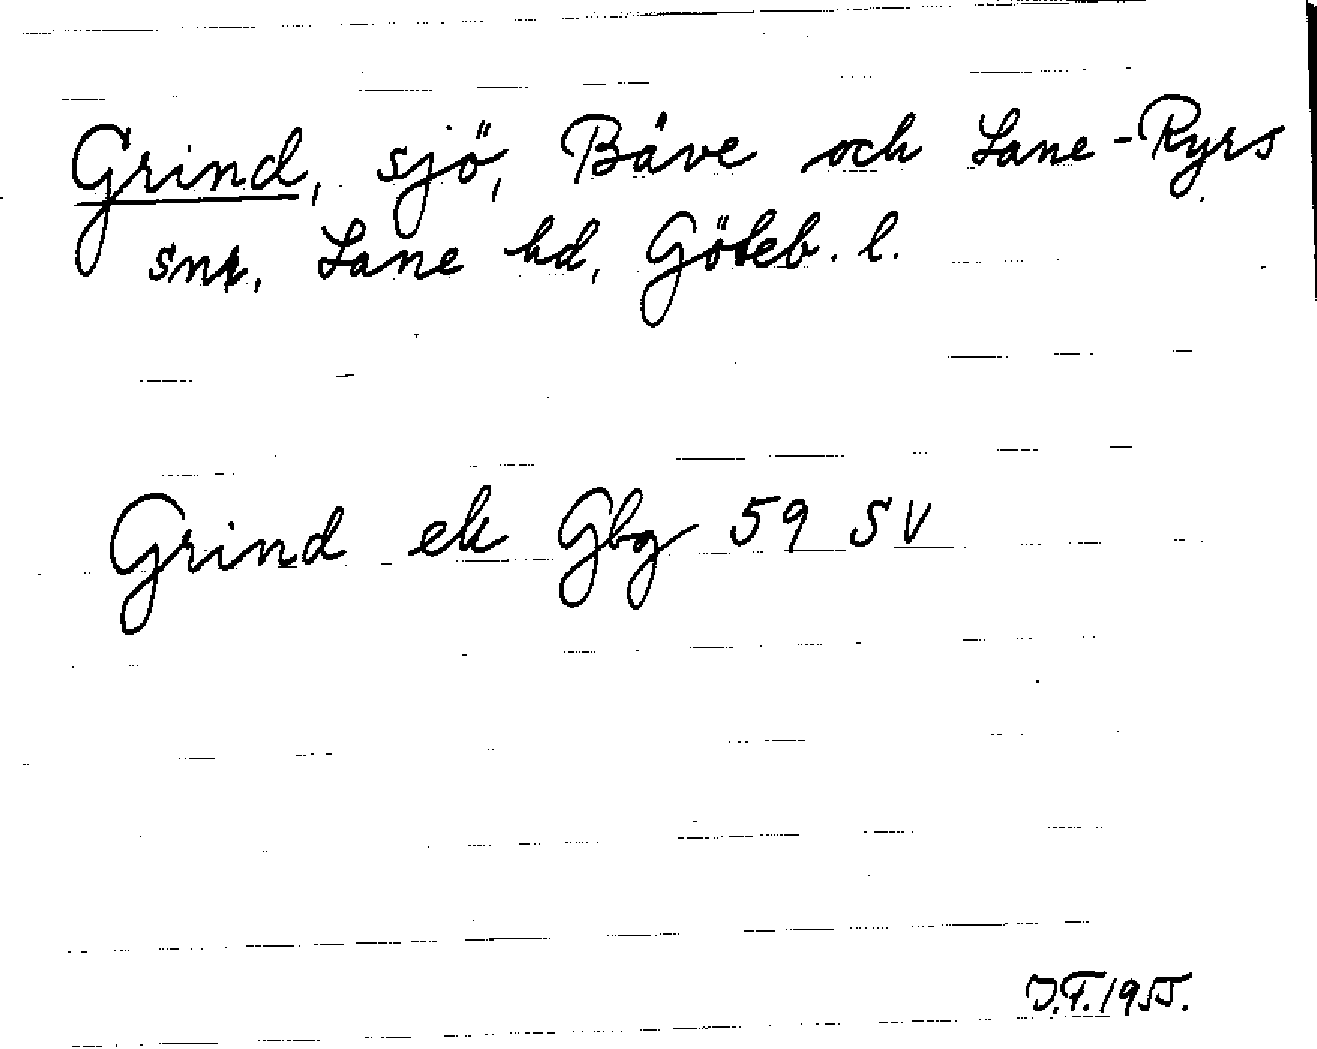 Grind, sjö, Bäve och Lane-Ryrs
snr, Lane hd, Göteb. l.
Grind ek Gbg 59 SV
J.F. 1955.